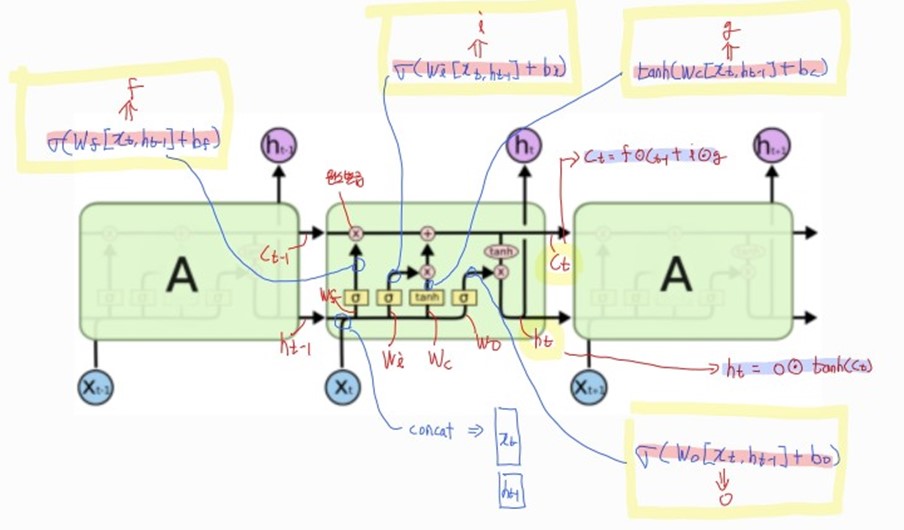 i
⇑
σ(Wi[xt, ht-1]+bi)
g
⇑
tanh(Wc[xt,ht-1]+bc)
f
⇑
σ(Wf[xt,ht-1]+bf)
ht-1
ht
ht+1
Ct = f⊙Ct-1 + i⊙g
원소별곱
x
+
Ct-1
tanh
Ct
A
x
x
A
Wf
σ
σ
tanh
σ
ht-1
Wi
Wc
Wo
ht
ht = o⊙ tanh(Ct)
Xt-1
Xt
Xt+1
concat ⇒
xt
ht-1
σ(Wo[xt,ht-1]+bo)
⇓
o